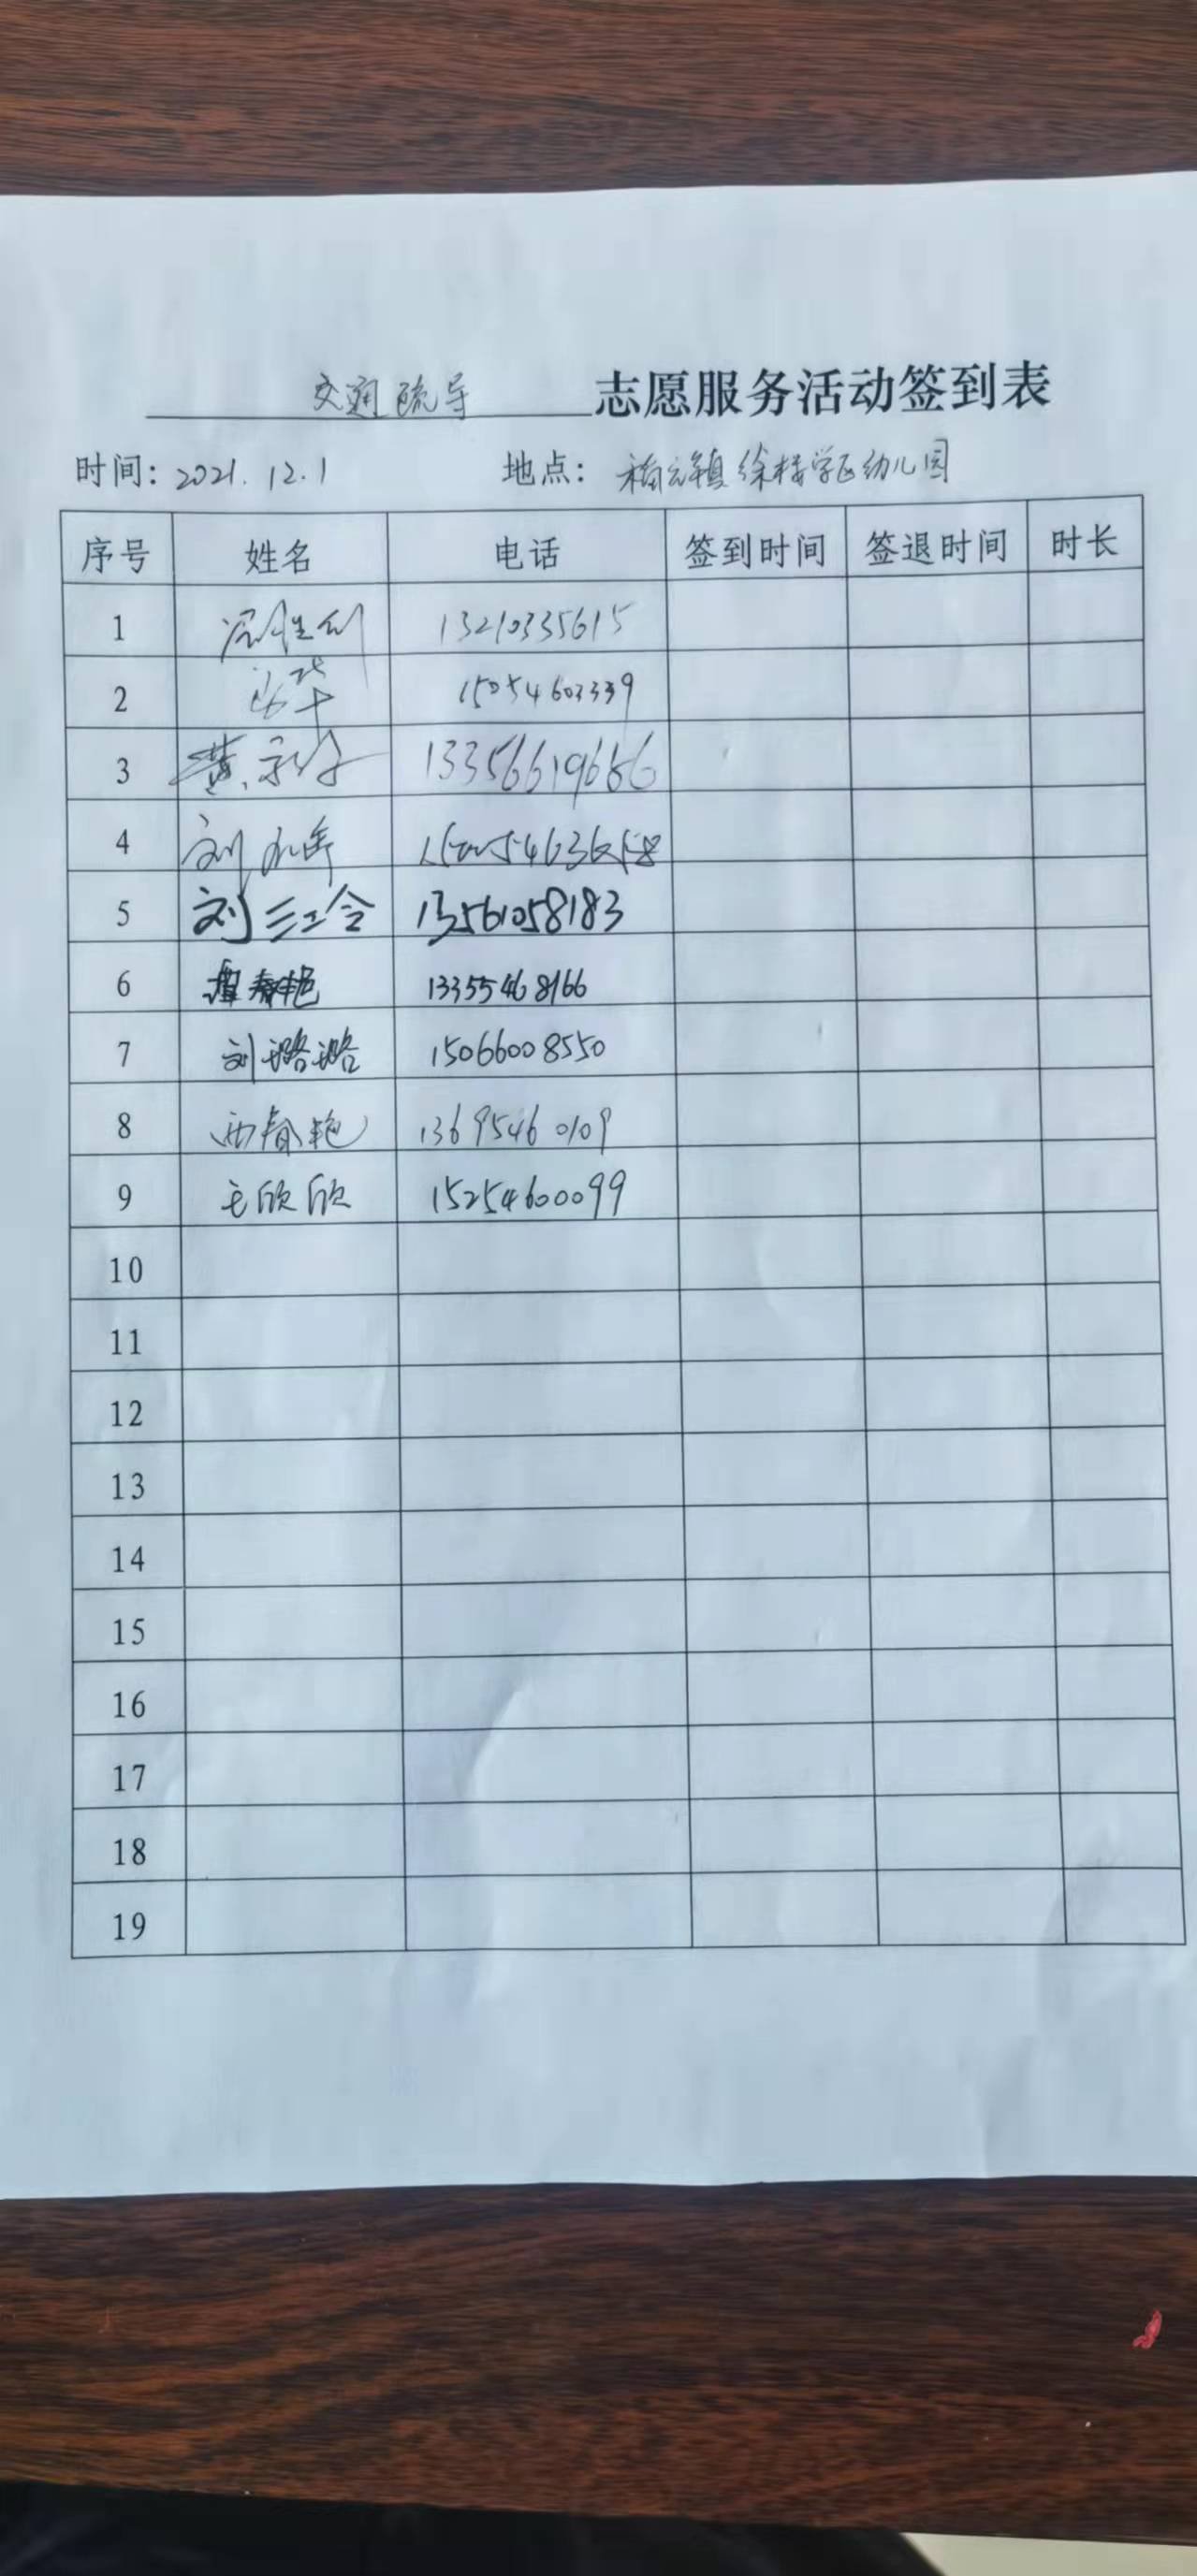 交通疏导 志愿服务活动签到表
时间：2021.12.1 地点：稻庄镇徐楼学区幼儿园
序号 姓名 电话 签到时间 签退时间 时长
1 13210335615
2 15054603339
3 黄 13356619686
4 刘
5 刘三令 13561058183
6 春艳 13355468166
7 刘璐璐 15066008550
8 西春艳 13695460109
9 王欣欣 15254600099
10
11
12
13
14
15
16
17
18
19